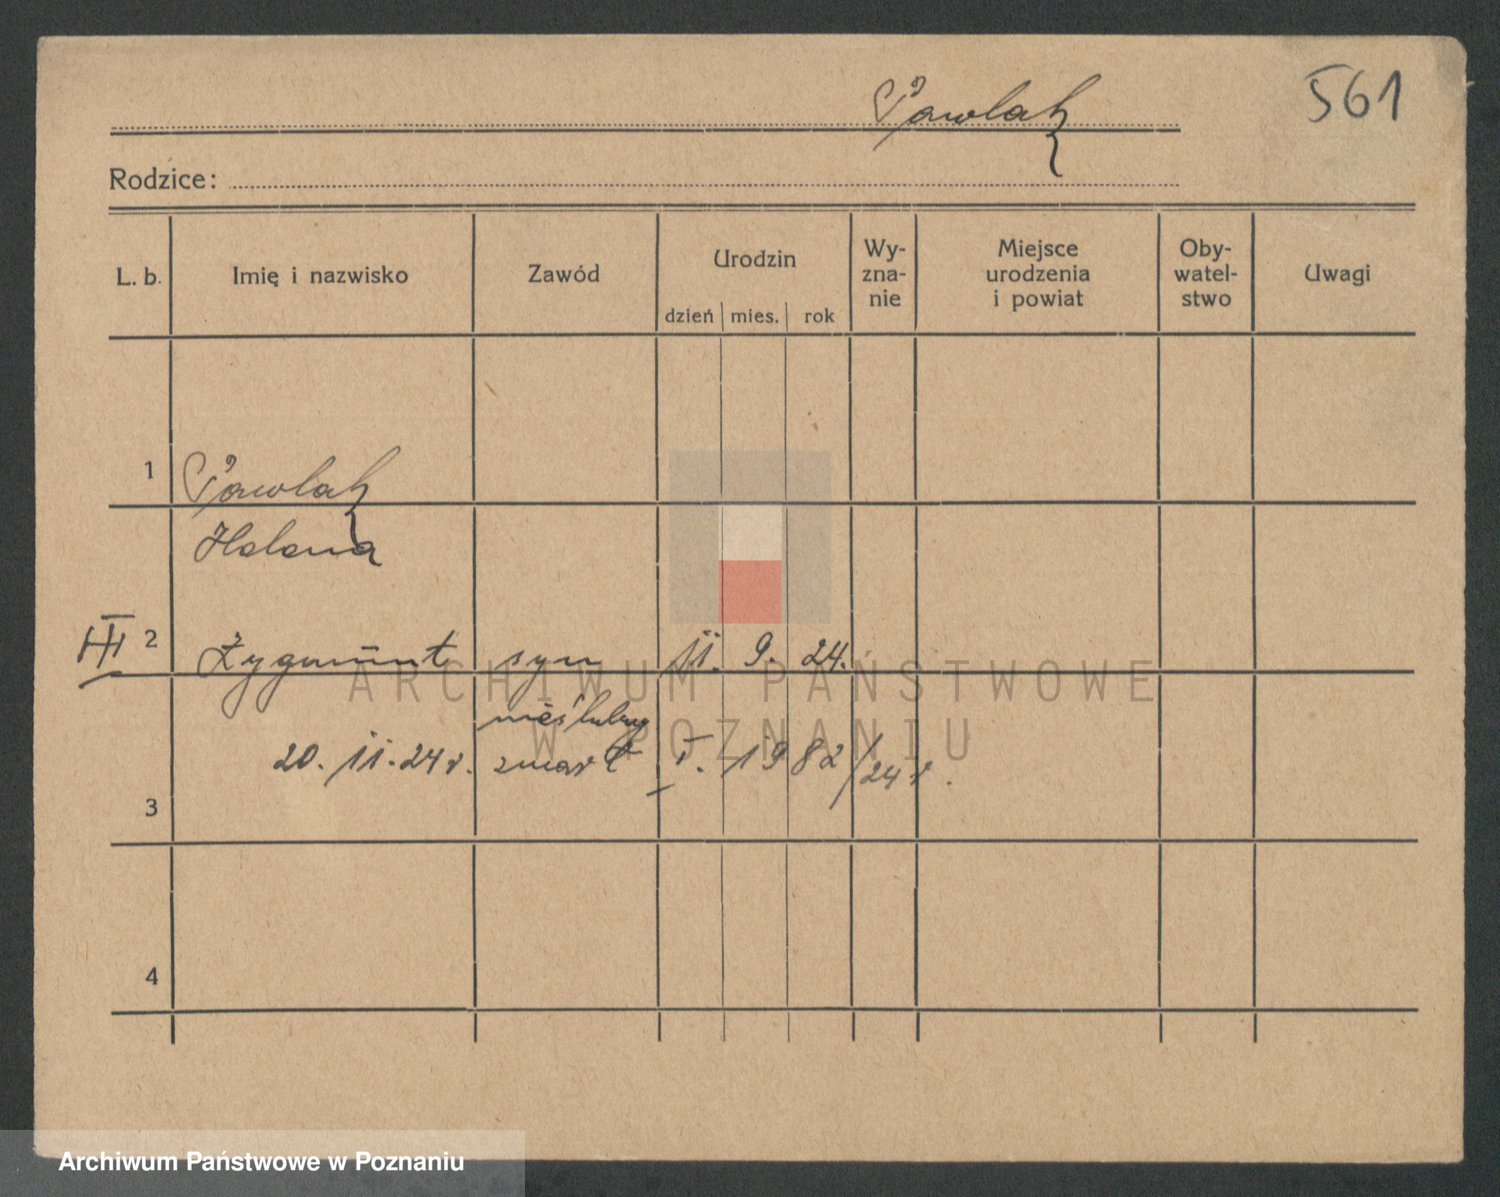 Pawlak
561
Rodzice:
L. b.
Imię i nazwisko
Zawód
Urodzin
dzień mies. rok
Wy-
zna-
nie
Miejsce
urodzenia
i powiat
Oby-
watel-
stwo
Uwagi
1
Pawlak
Helena
III 2 Zygmunt syn 11. 9. 24.
nieślubny
20. 11. 24 r. zmarł I. 1982/24 r.
3
4
ARCHIWUM PAŃSTWOWE
W POZNANIU
Archiwum Państwowe w Poznaniu